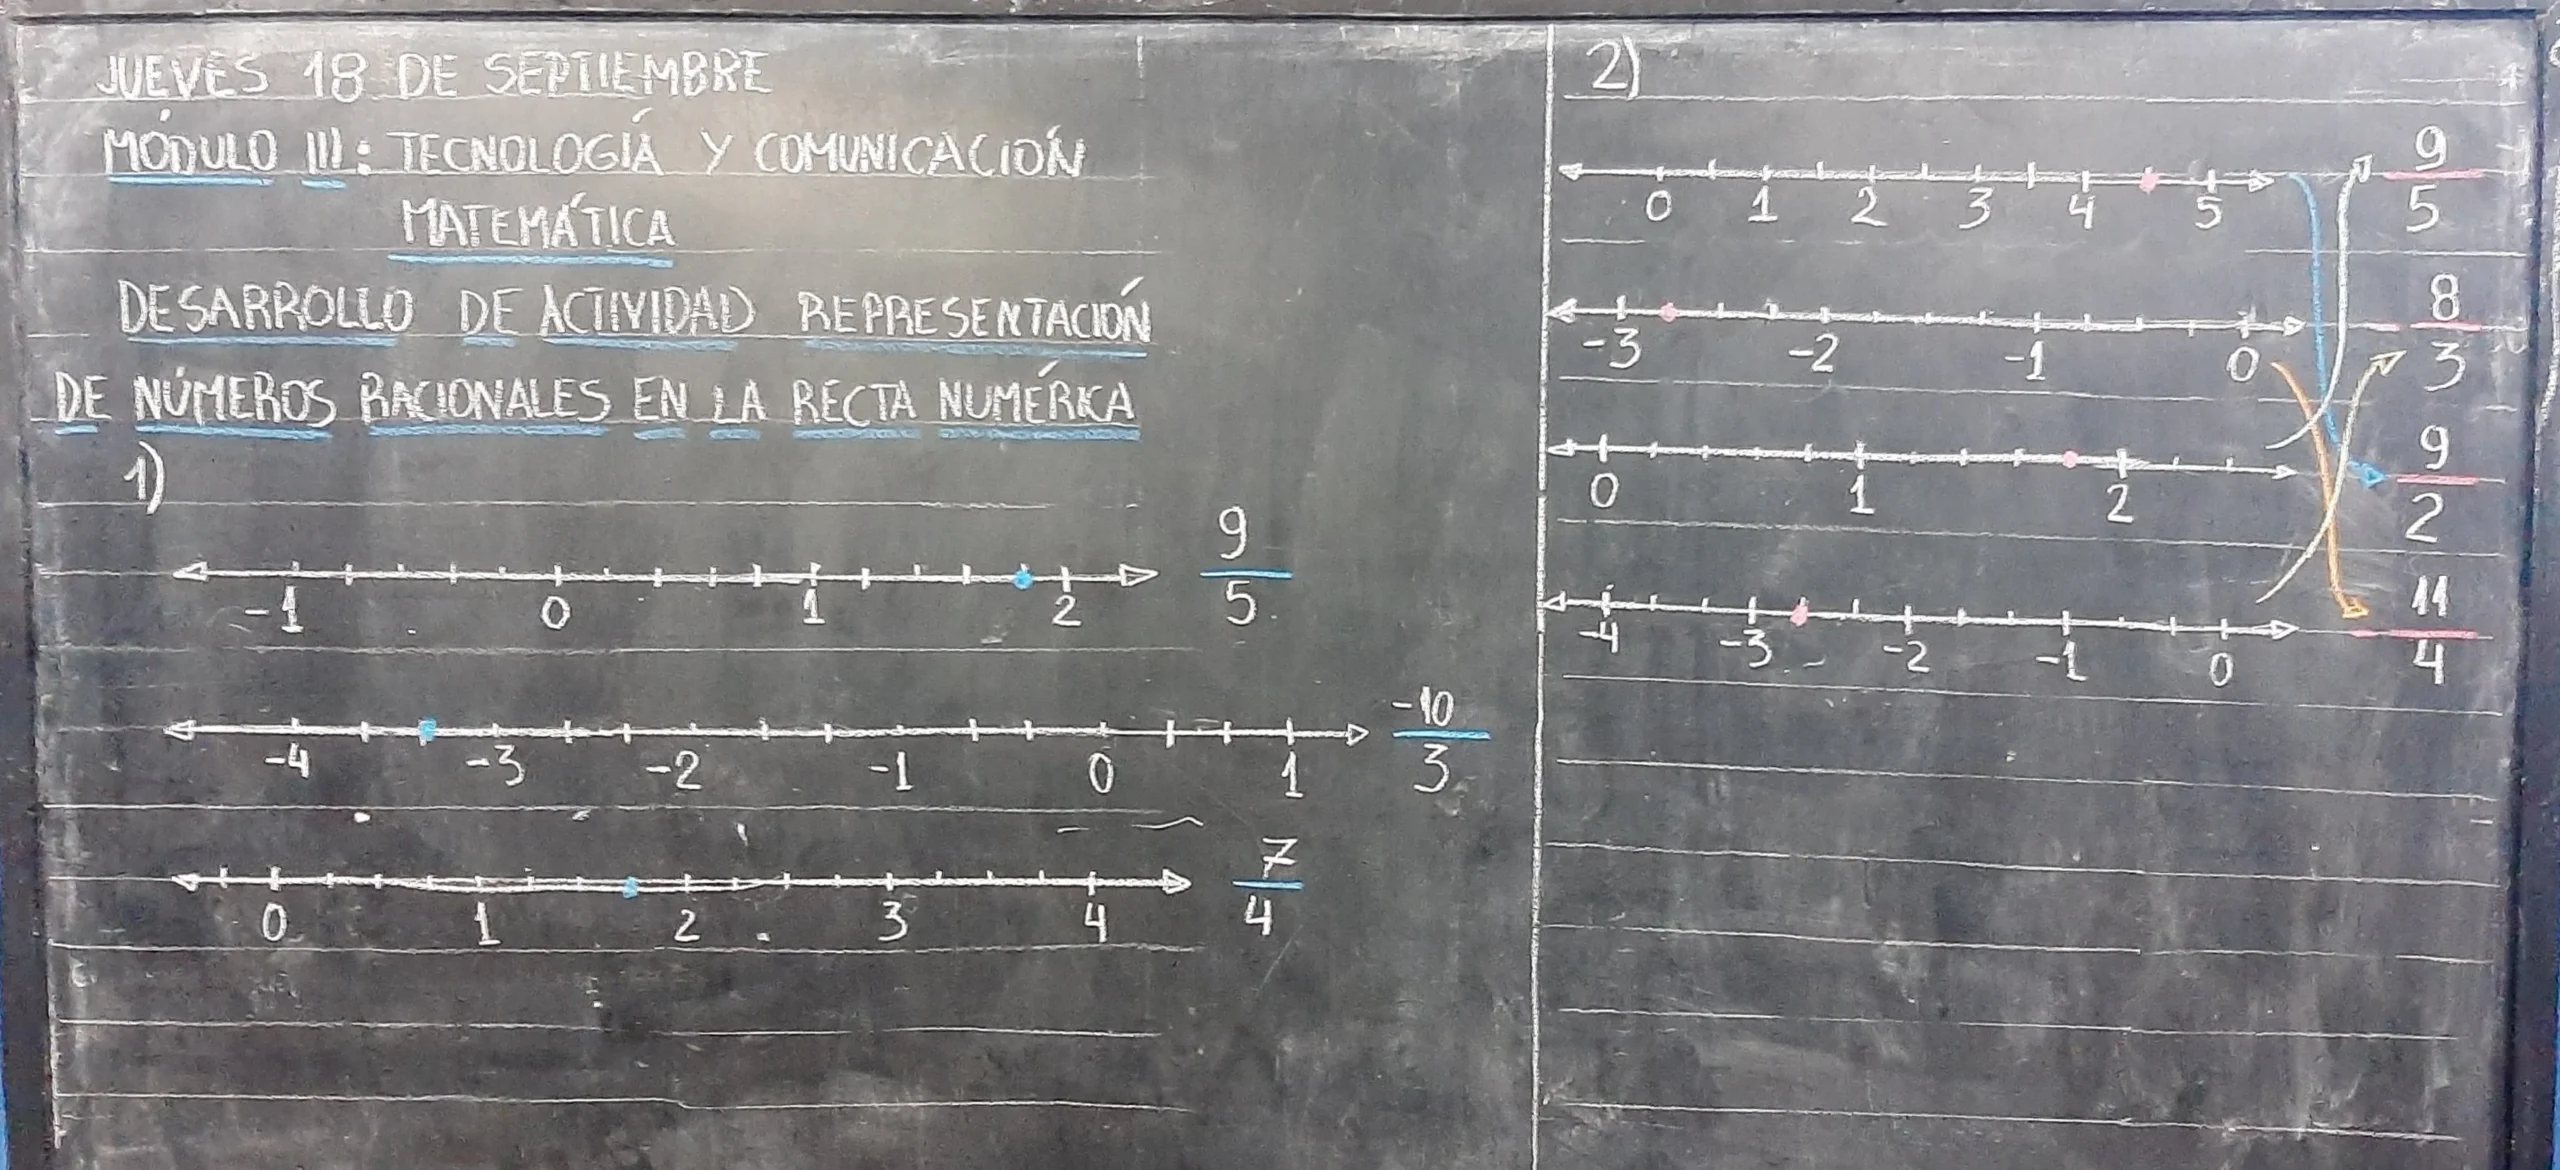 JUEVES 18 DE SEPTIEMBRE
MÓDULO III: TECNOLOGÍA Y COMUNICACIÓN
MATEMÁTICA
DESARROLLO DE ACTIVIDAD REPRESENTACIÓN
DE NÚMEROS RACIONALES EN LA RECTA NUMÉRICA
1)
-1 0 1 2 9/5
-4 -3 -2 -1 0 1 -10/3
0 1 2 3 4 7/4
2)
0 1 2 3 4 5 9/5
-3 -2 -1 0 -8/3
0 1 2 9/2
-4 -3 -2 -1 0 -11/4